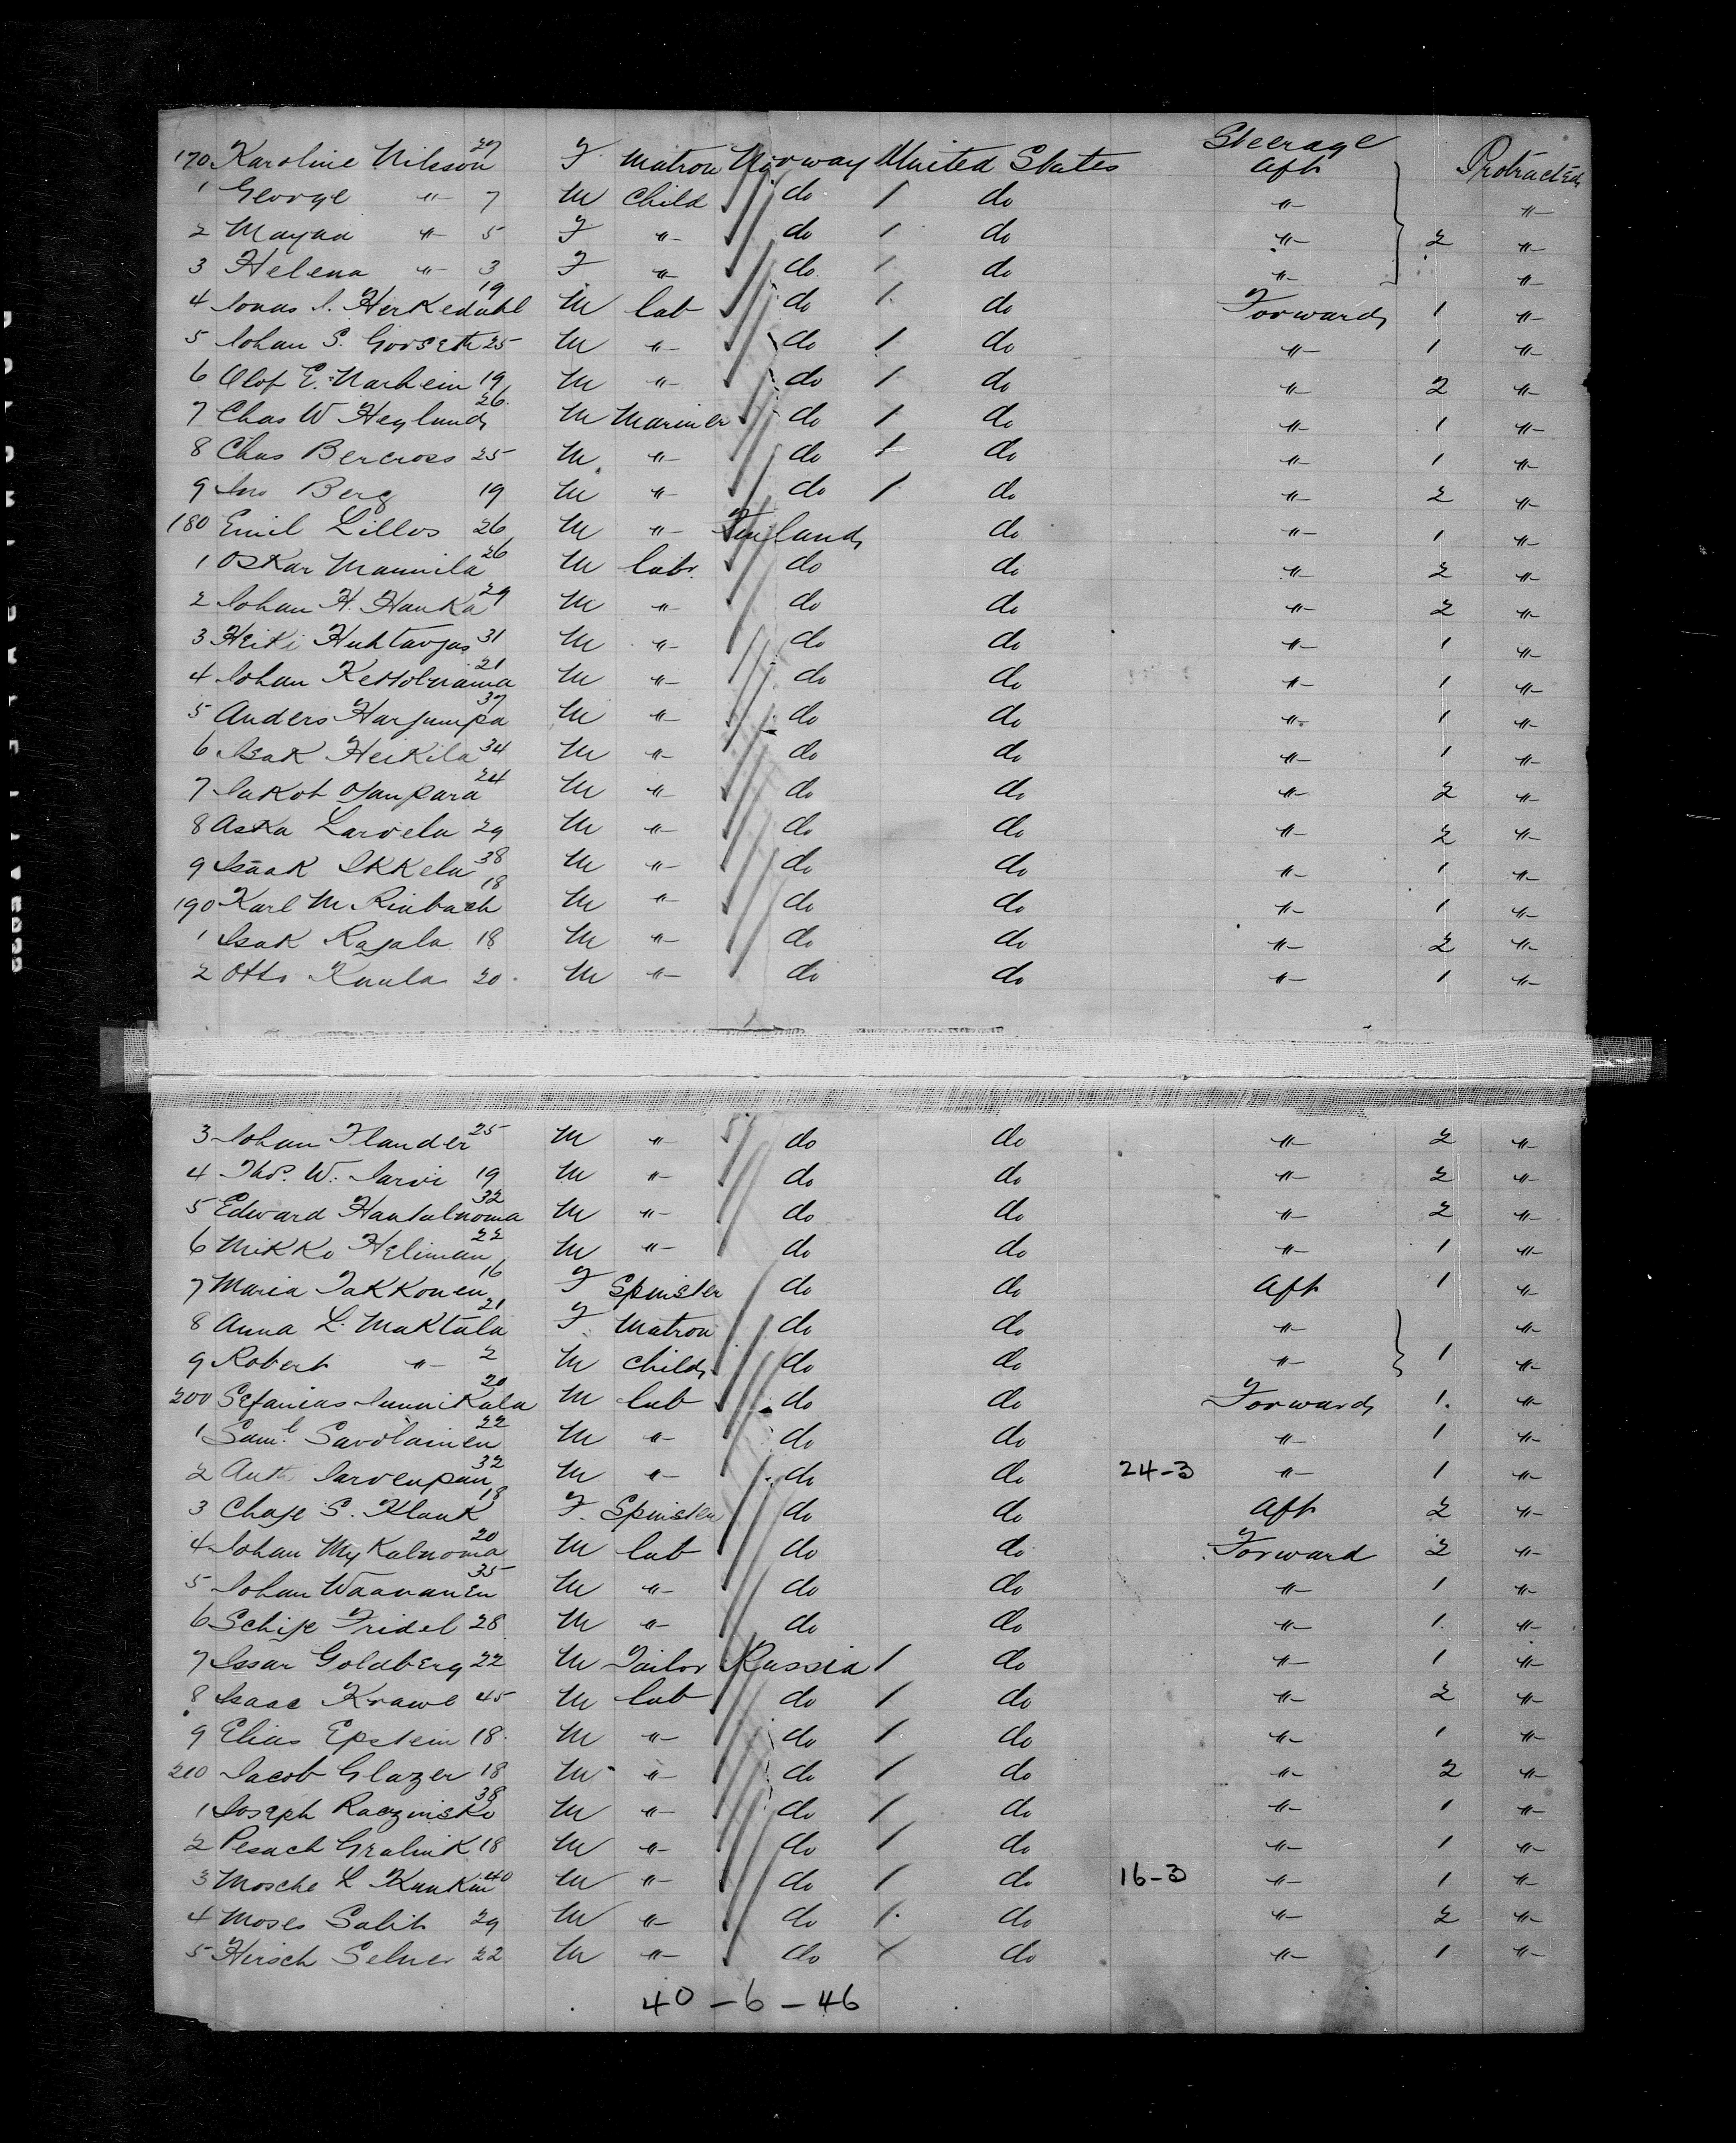 Steerage
170 Karoline Nilsson 27 F Matron Norway United States Aft Protracted
1 George " 7 M Child do 1 do " "
2 Mayaa " 5 F " do 1 do " 2 "
3 Helena " 3 F " do 1 do " "
4 Jonas J. Herkedahl 19 M lab do 1 do Forward 1 "
5 Johan S. Gorseth 25 M " do 1 do " 1 "
6 Olof E. Narhein 19 M " do 1 do " 2 "
7 Chas W Heglund 26 M Mariner do 1 do " 1 "
8 Chas Bercross 25 M " do 1 do " 1 "
9 Jno Berg 19 M " do 1 do " 2 "
180 Emil Lillos 26 M " Finland do " 1 "
1 Oskar Mannila 26 M labr. do do " 2 "
2 Johan H. Hauka 29 M " do do " 2 "
3 Heiki 31 M " do do " 1 "
4 Johan 21 M " do do " 1 "
5 Anders Harjumpa 37 M " do do " 1 "
6 Isak Heikila 34 M " do do " 1 "
7 Jakob Ojanpara 24 M " do do " 2 "
8 Aska Larvela 29 M " do do " 2 "
9 Isaak Ikkela 38 M " do do " 1 "
190 Karl M Rinbach 18 M " do do " 1 "
1 Isak Rajala 18 M " do do " 2 "
2 Otto Kaula 20 M " do do " 1 "
3 Johan Flander 25 M " do do " 2 "
4 Thos. W. Jarvi 19 M " do do " 2 "
5 Edward Hautaluoma 32 M " do do " 2 "
6 Mikko Heliman 22 M " do do " 1 "
7 Maria Takkonen 16 F Spinster do do Aft 1 "
8 Anna L. Maktala 21 F Matron do do " "
9 Robert " 2 M Child do do " 1 "
200 Sefanias Junnikala 20 M lab do do Forward 1 "
1 Saml. Savolainen 22 M " do do " 1 "
2 Antti Jarvenpaa 32 M " do do 24-3 " 1 "
3 Chaje S. Klank 18 F. Spinster do do Aft 2 "
4 Johan Mykaluoma 20 M lab do do Forward 2 "
5 Johan Waananen 35 M " do do " 1 "
6 Schije Fridel 28 M " do do " 1 "
7 Issar Goldberg 22 M Tailor Russia 1 do " 1 "
8 Isaac Krawe 45 M lab do 1 do " 2 "
9 Elias Epstein 18 M " do 1 do " 1 "
210 Jacob Glazer 18 M " do 1 do " 2 "
1 Joseph Raczinsko 38 M " do 1 do " 1 "
2 Pesach Gralnik 18 M " do 1 do " 1 "
3 Mosche L Kunkin 40 M " do 1 do 16-3 " 1 "
4 Moses Salit 29 M " do 1 do " 2 "
5 Hirsch Selner 22 M " do 1 do " 1 "
40-6-46